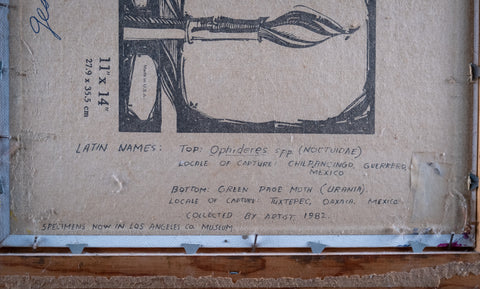 11" x 14"
27.9 x 35.5 cm
Made in U.S.A.
LATIN NAMES: TOP: Ophideres spp (NOCTUIDAE)
LOCALE OF CAPTURE: CHILPANCINGO, GUERRERO,
MEXICO
BOTTOM: GREEN PAGE MOTH (URANIA).
LOCALE OF CAPTURE: TUXTEPEC, OAXACA, MEXICO
COLLECTED BY ARTIST 1982.
SPECIMENS NOW IN LOS ANGELES CO. MUSEUM.